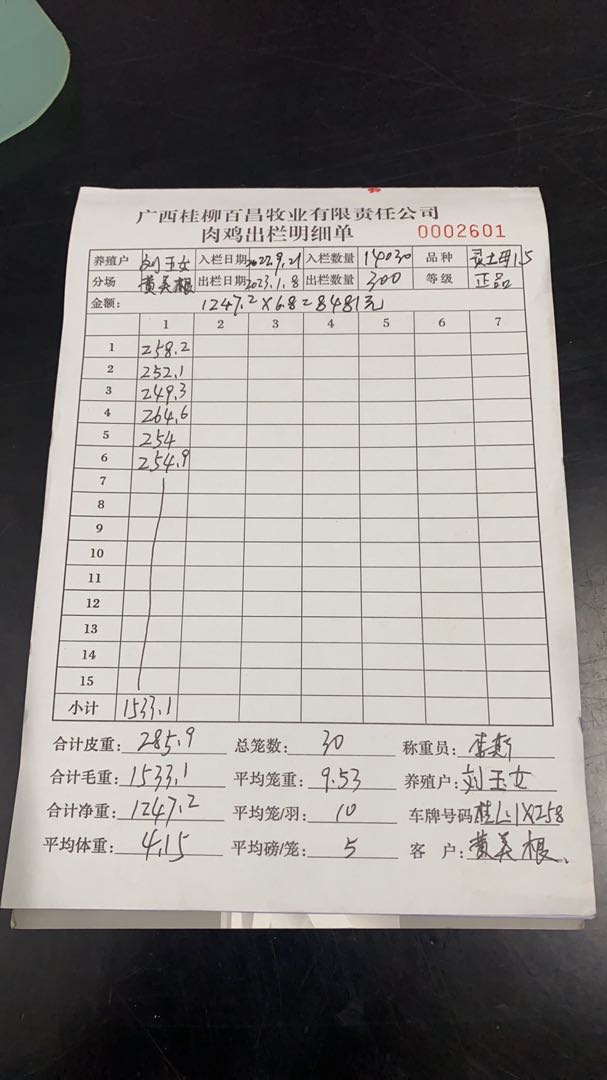 广西桂柳百昌牧业有限责任公司
肉鸡出栏明细单 0002601
养殖户 刘玉女 入栏日期 2022.9.21 入栏数量 14030 品种 灵土母1.5
分场 黄美根 出栏日期 2023.1.8 出栏数量 300 等级 正品
金额: 1247.2×6.8=8481元
1 2 3 4 5 6 7
1 258.2
2 252.1
3 249.3
4 264.6
5 254
6 254.9
7
8
9
10
11
12
13
14
15
小计 1533.1
合计皮重: 285.9 总笼数: 30 称重员:
合计毛重: 1533.1 平均笼重: 9.53 养殖户: 刘玉女
合计净重: 1247.2 平均笼/羽: 10 车牌号码 桂L1X258
平均体重: 4.15 平均磅/笼: 5 客 户: 黄美根